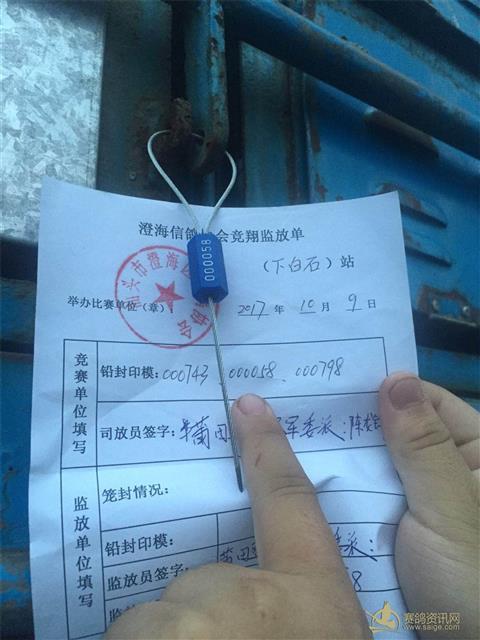 澄海信鸽 会竞翔监放单
000058
(下白石)站
汕头市澄海区
举办比赛单位(章)
2017年 10月 9日
竞赛单位填写
铅封印模:000743、000058、000798
司放员签字: 莆田 军委派:陈
监放单位填写
笼封情况:
铅封印模:
监放员签字: 莆田
监放
赛鸽资讯网
www.saige.com